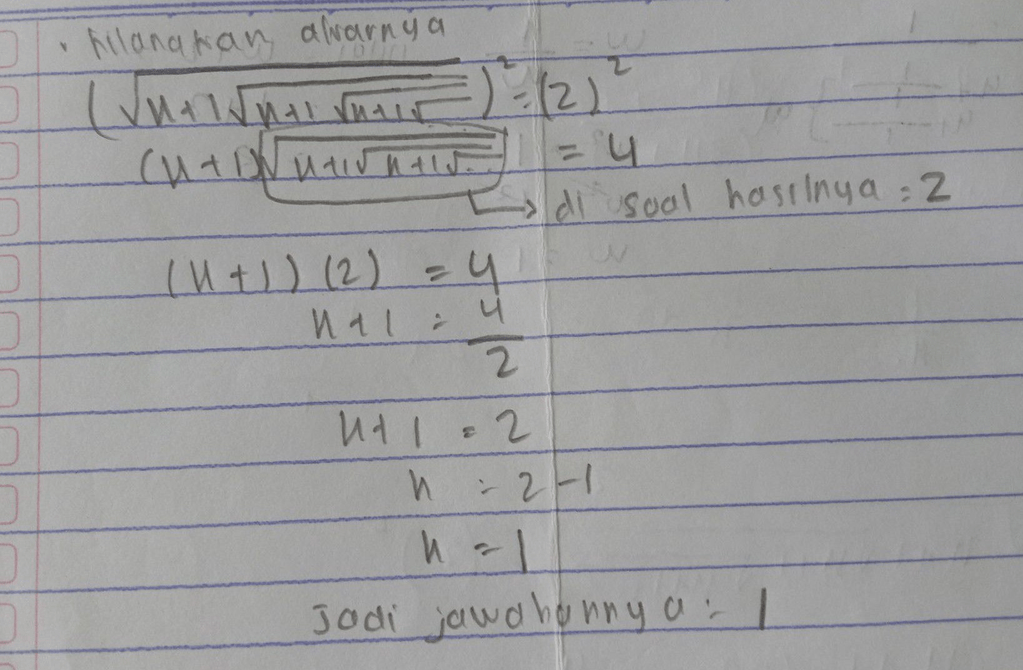 • Hilangkan akarnya
(√n+1√n+1√n+1√‾)² = (2)²
(n+1)√n+1√n+1√... = 4
→ di soal hasilnya = 2
(n+1)(2) = 4
n+1 = 4/2
n+1 = 2
n = 2-1
n = 1
Jadi jawabannya = 1